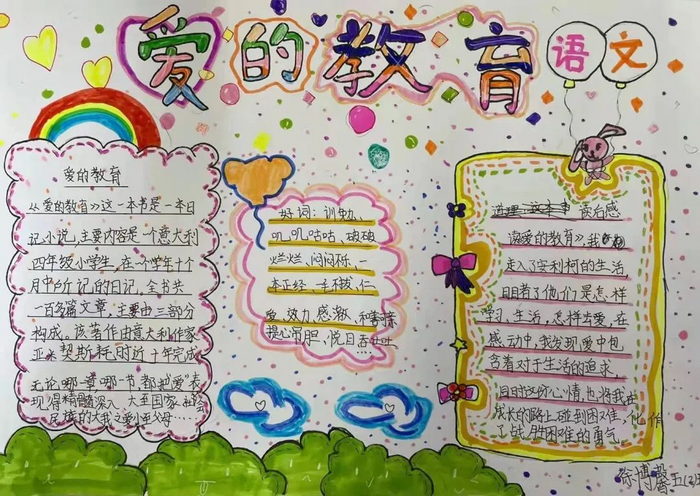 爱的教育
语文
爱的教育
《爱的教育》这一本书是一本日
记小说,主要内容是一个意大利
四年级小学生,在一个学年十个
月中所记的日记,全书共
一百多篇文章,主要由三部分
构成。该著作由意大利作家
亚米契斯耗时近十年完成
无论哪一章哪一节,都把爱表
现得精髓深入 大至国家社会
民族的大我之爱小至父母…
好词:训勉、
叽叽咕咕、破破
烂烂、闷闷不乐、一
本正经、
爱 效力 感激
提心吊胆、悦目
读后感
读《爱的教育》,我
走入了安利柯的生活,
目睹了他们是怎样
学习、生活,怎样去爱,在
感动中,我发现爱中包
含着对于生活的追求,
这份心情,也将我在
成长的路上碰到困难,化作
了战胜困难的勇气
徐博馨 五